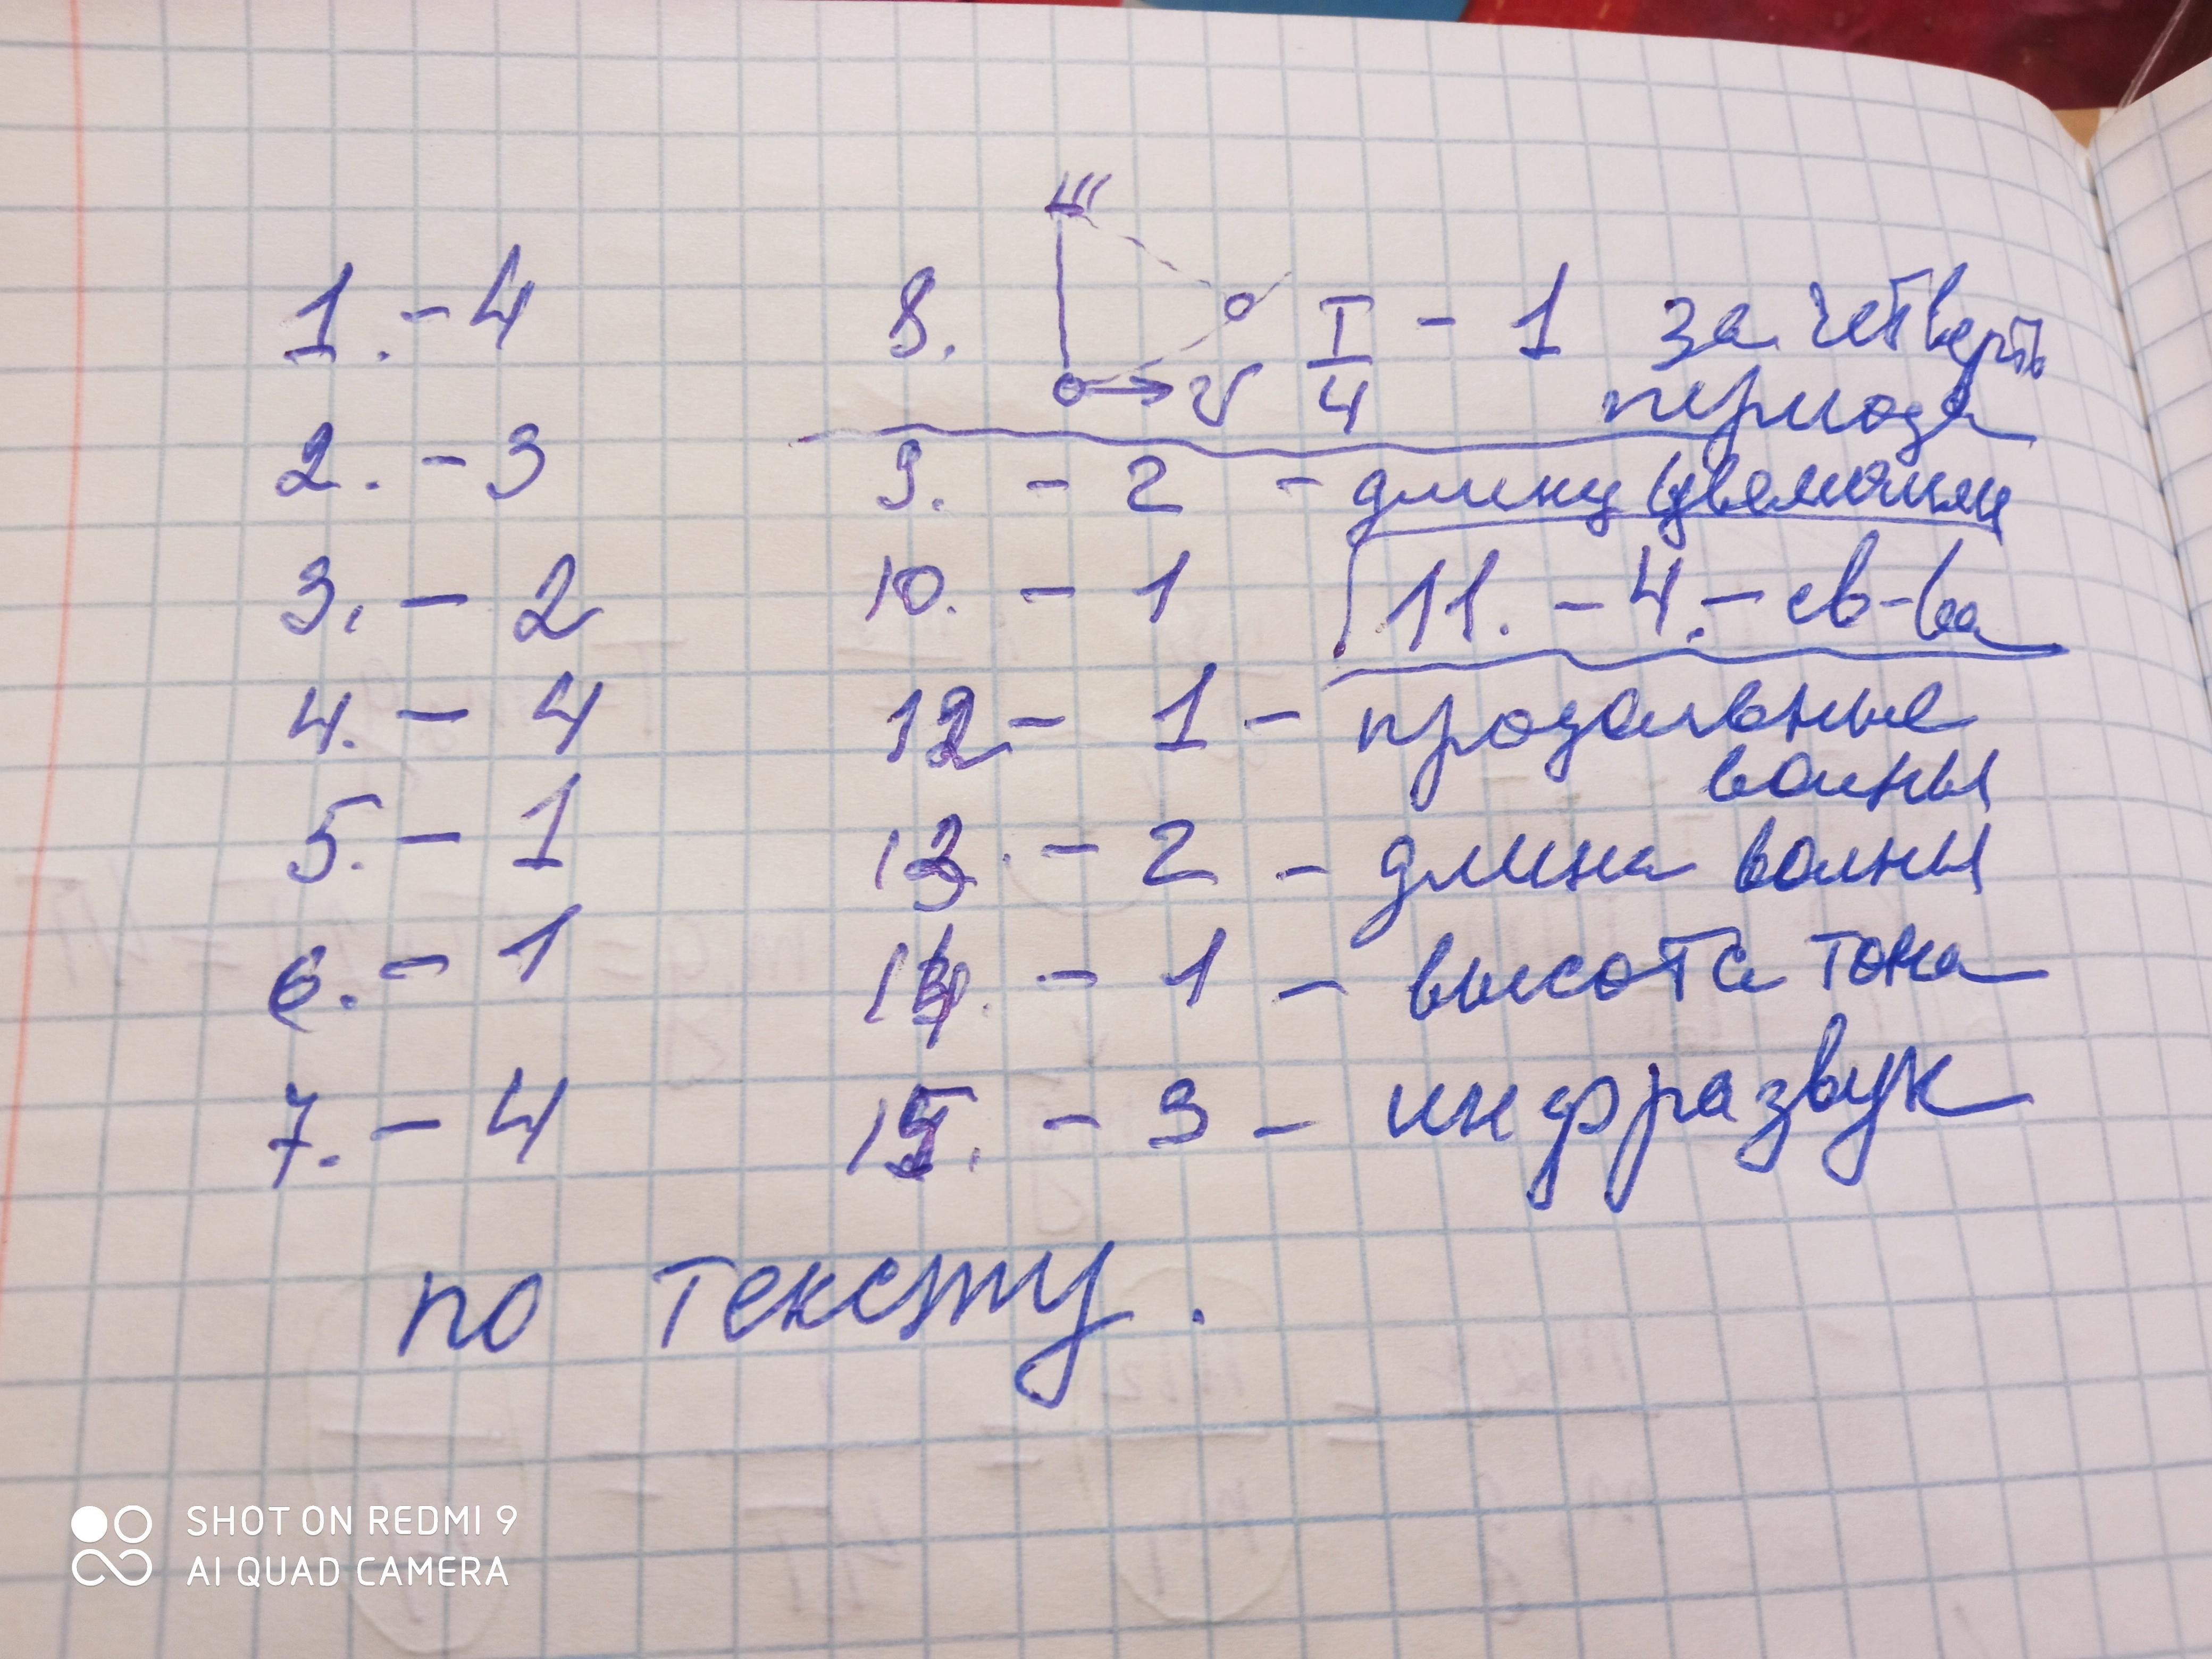 1. - 4
2. - 3
3. - 2
4. - 4
5. - 1
6. - 1
7. - 4
8. V T/4 - 1 за четверть
периода
9. - 2 - длину увеличили
10. - 1
11. - 4. - св-ва
12 - 1 - продольные
волны
13. - 2 - длина волны
14. - 1 - высота тона
15. - 3 - инфразвук
по тексту.
SHOT ON REDMI 9
AI QUAD CAMERA